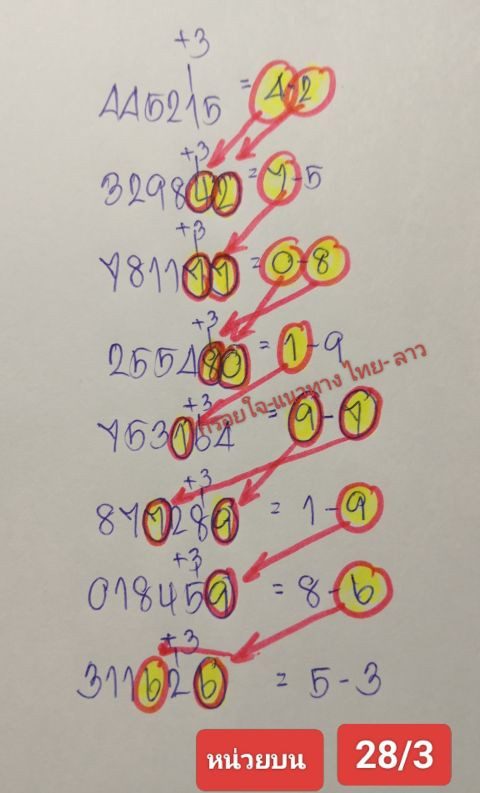 +3
445215 = 4-2
+3
329842 = 7-5
+3
781177 = 0-8
+3
255480 = 1-9
กรอยใจ-แนวทาง ไทย-ลาว
+3
753164 = 9-7
+3
877289 = 1-9
+3
018459 = 8-6
+3
311626 = 5-3
หน่วยบน 28/3